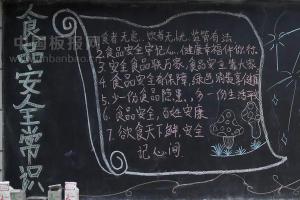 食品安全常识
食者无虑，饮者无忧，监管有法
2、食品安全牢记心，健康幸福伴你行
3、安全食品联万家，食品安全靠大家
4、食品安全有保障，绿色消费享健康
5、少一份食品隐患，多一份生活平安
6、食品安全，百姓安康
7、欲食天下鲜，安全
记心间
中国板报网